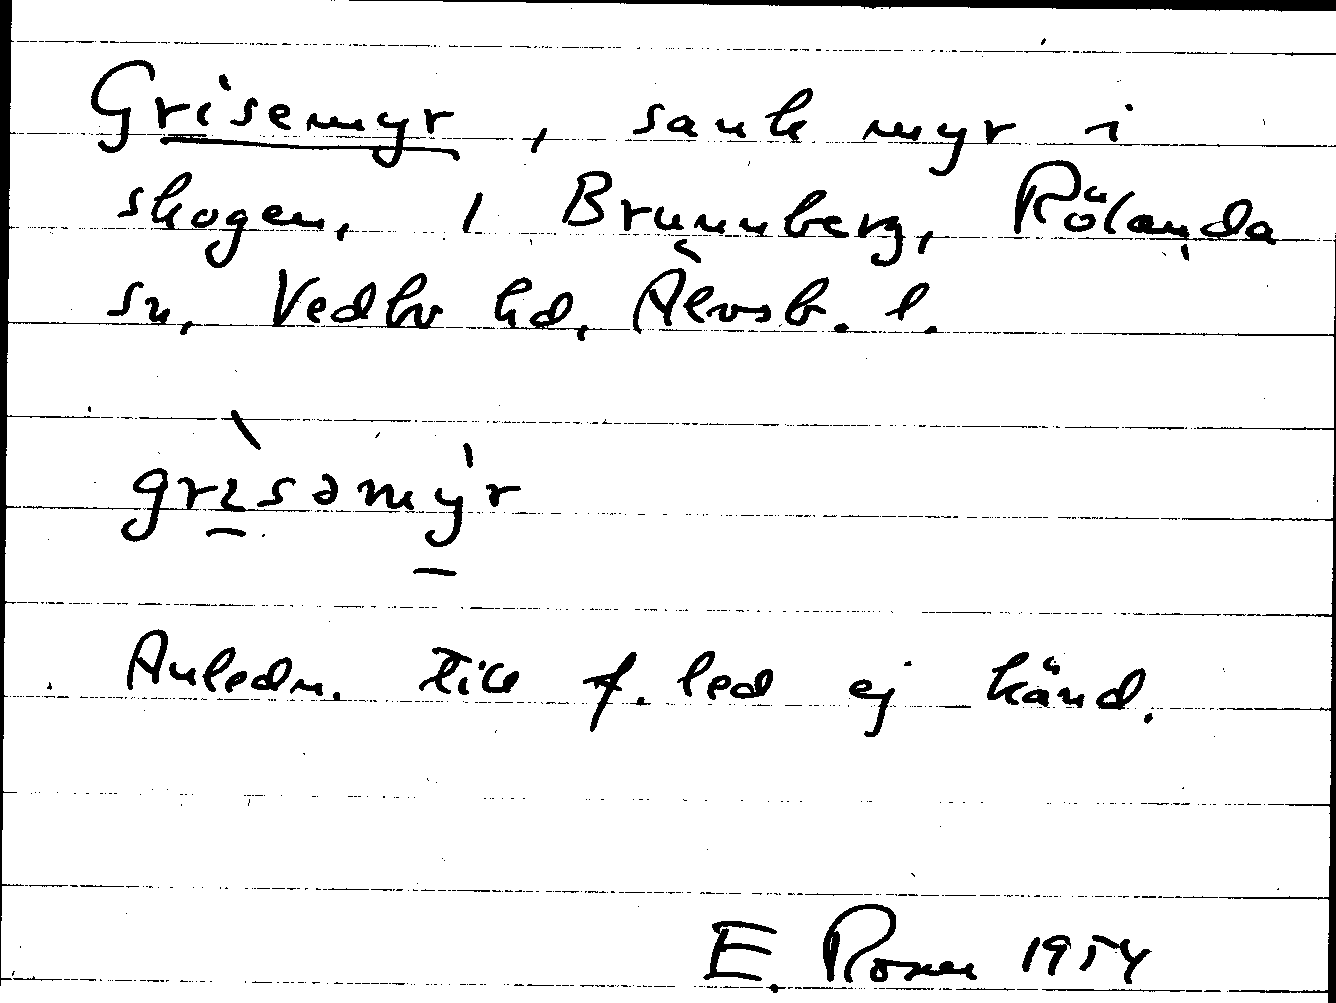 Grisemyr, sank myr i
skogen, 1 Brunnberg, Rölanda
sn, Vedbo hd, Älvsb. l.
grisəmyr
Anledn. till f. led ej känd.
E. Rosen 1954